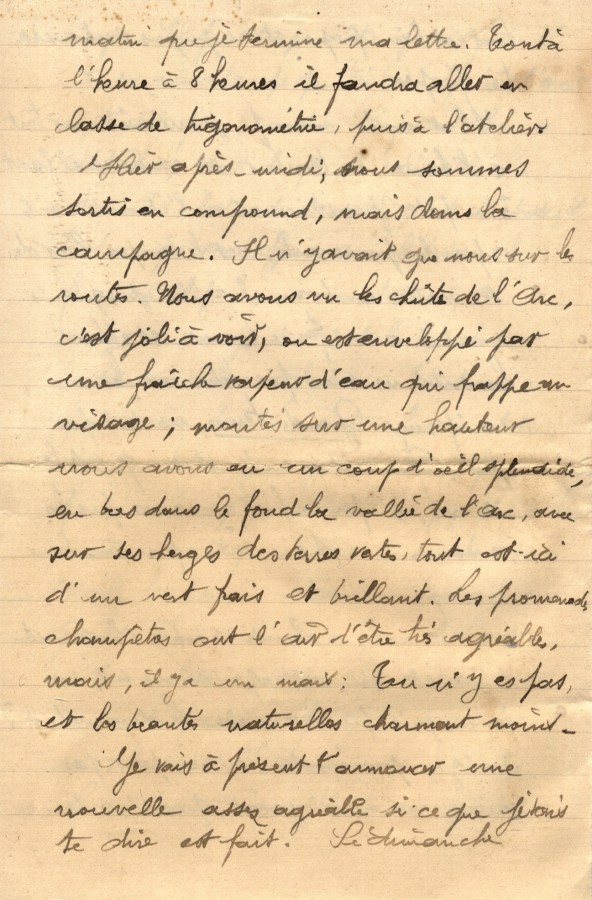 matin que je termine ma lettre. Tout à
l'heure à 8 heures il faudra aller en
classe de trigonométrie, puis à l'atelier.
Hier après-midi, nous sommes
sortis en compound, mais dans la
campagne. Il n'y avait que nous sur les
routes. Nous avons vu les chûte de l'Arc,
c'est joli à voir, on est enveloppé par
une fraîche vapeur d'eau qui frappe au
visage ; montés sur une hauteur
nous avons eu un coup d'oeil splendide,
en bas dans le fond la vallée de l'Arc, avec
sur ses berges des terres vertes, tout est ici
d'un vert frais et brillant. Les promenades
champêtres ont l'air d'être très agréables,
mais, il y a un mais : Tu n'y es pas,
et les beautés naturelles charment moins -
Je vais à présent t'annoncer une
nouvelle assez agréable si ce que je vais
te dire est fait. Le dimanche